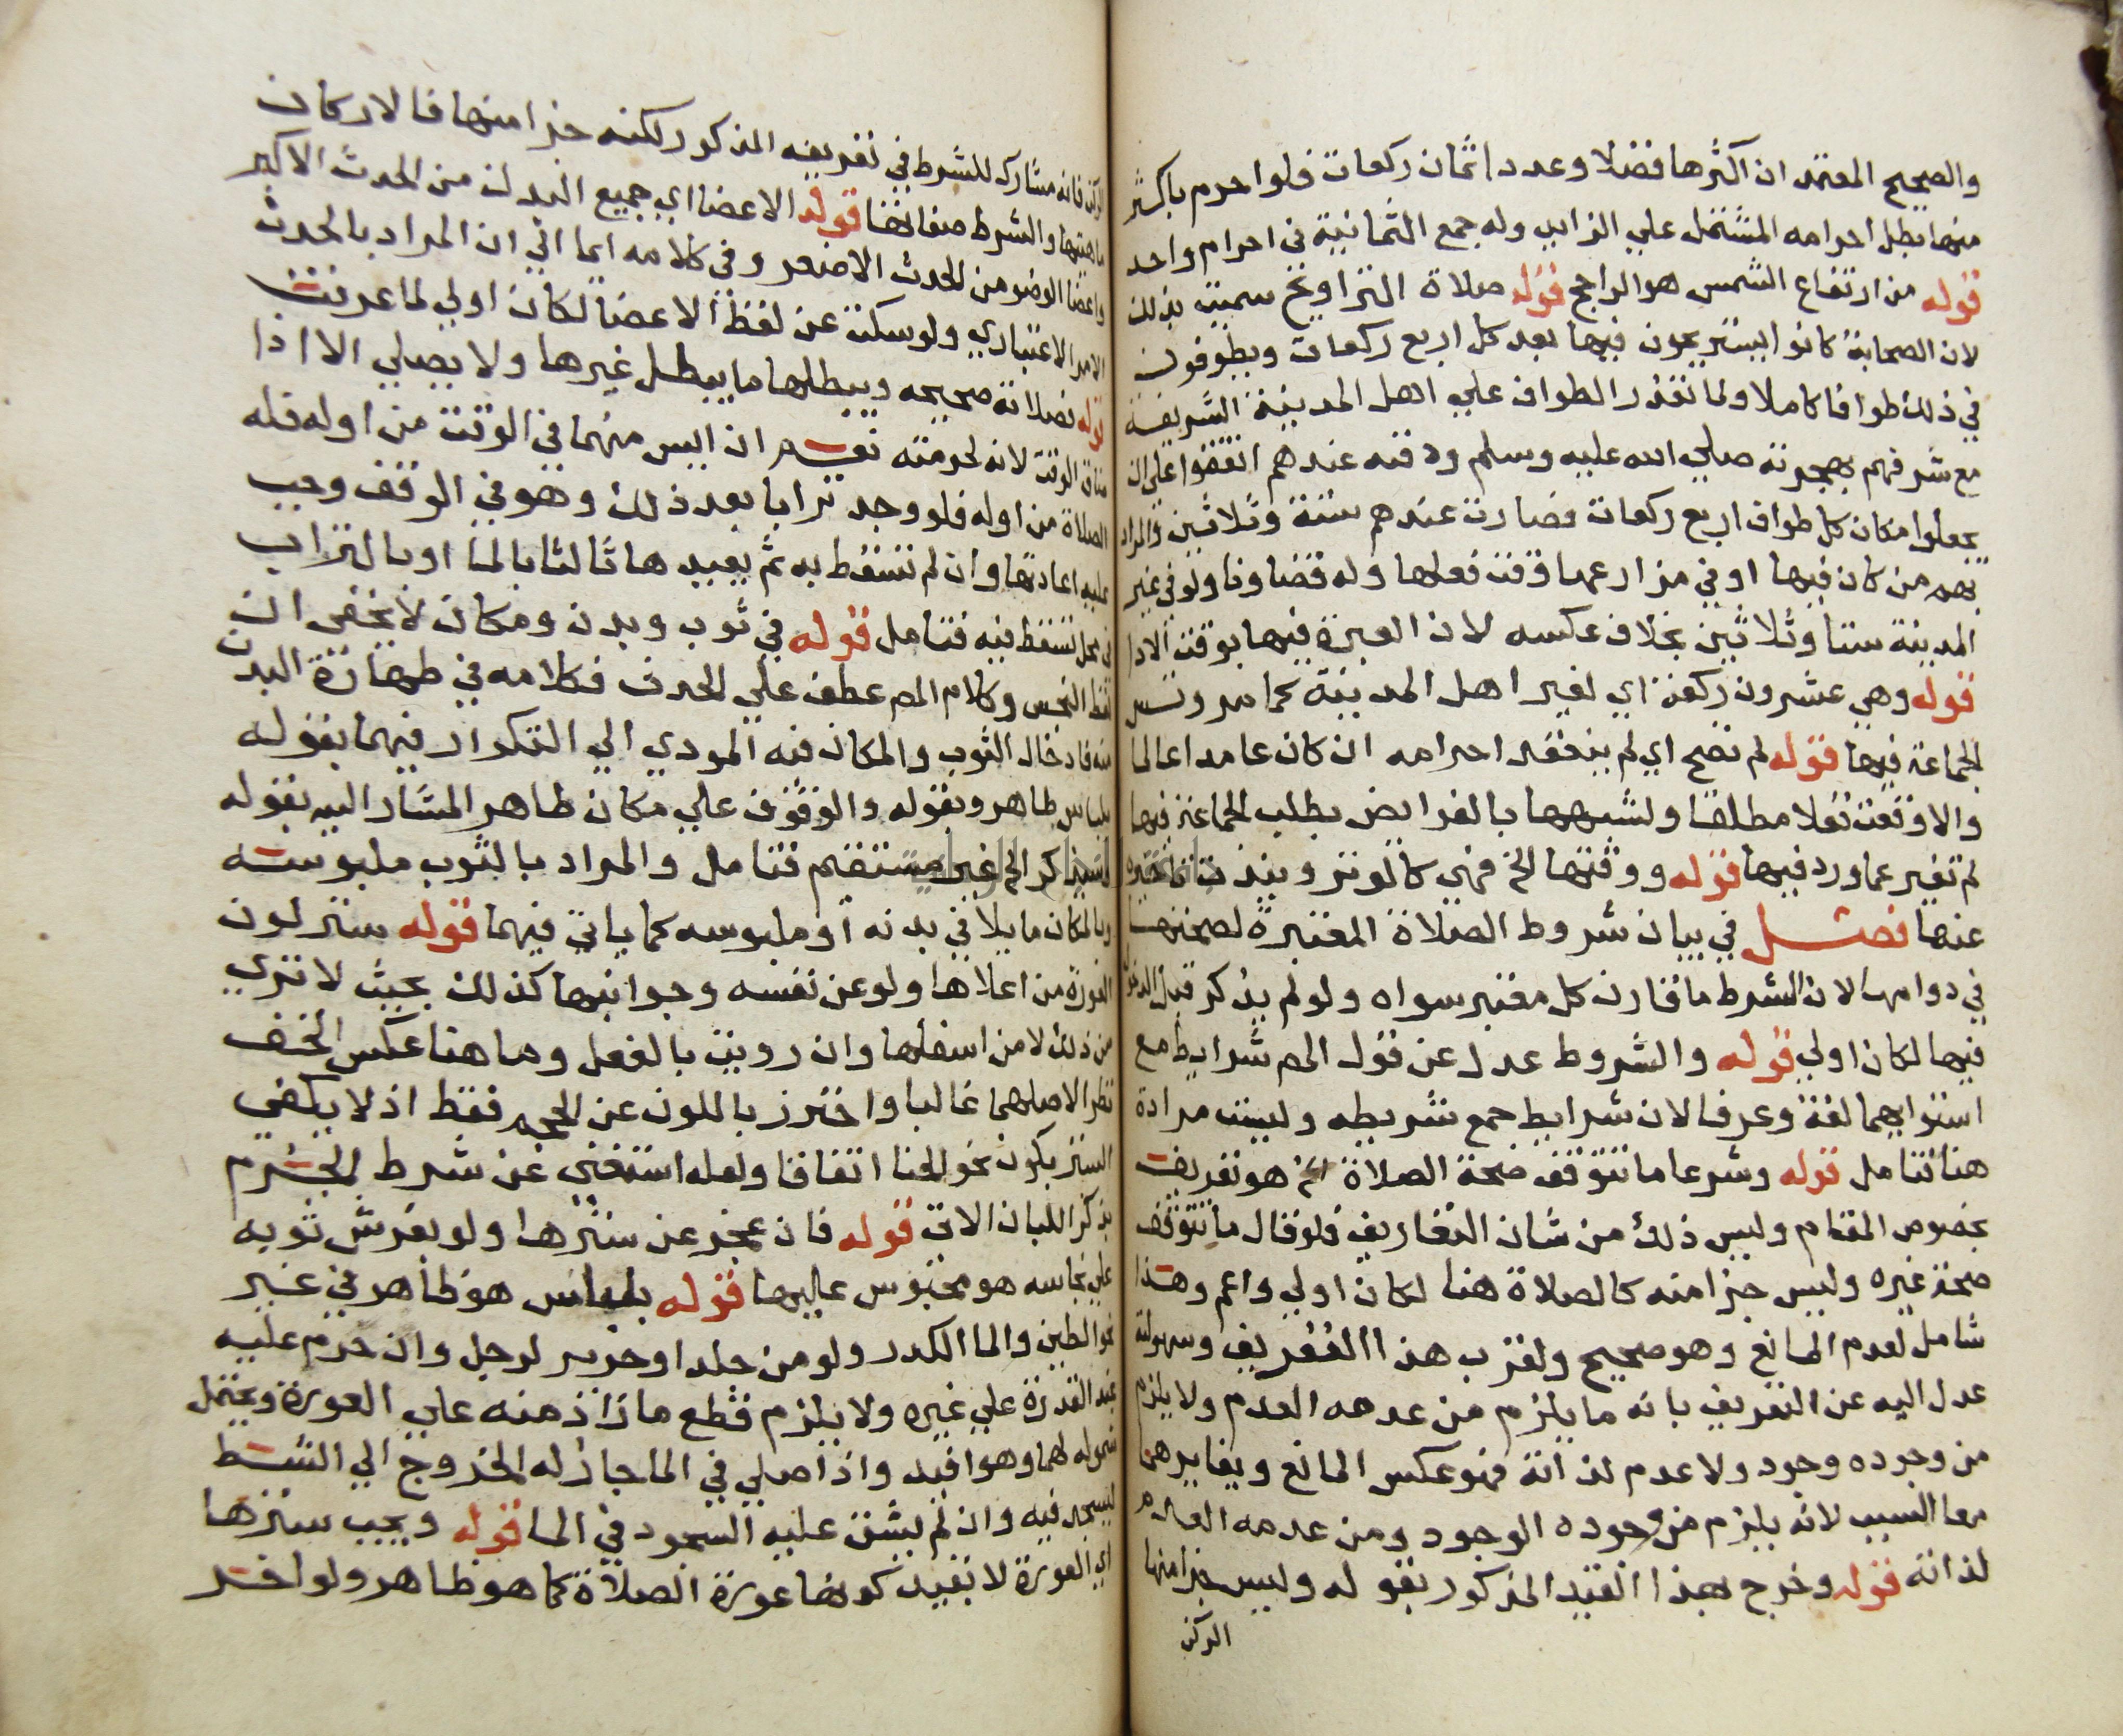 والصحيح المعتمد ان اكثرها فضلا وعددا ثمان ركعات فلو احرم باكثر
منها بطل احرامه المشتمل علي الزايد وله جمع الثمانية في احرام واحد
قوله من ارتفاع الشمس هو الراجح قوله صلاة التراويح سميت بذلك
لان الصحابة كانوا يستريحون فيها بعد كل اربع ركعات ويطوفون
في ذلك طوافا كاملا ولما تعذر الطواف علي اهل المدينة الشريفة
مع شرفهم بهجرته صلي الله عليه وسلم ودفنه عندهم اتفقوا علي ان
يجعلوا مكان كل طواف اربع ركعات فصارت عندهم ستة وثلاثين والمراد
بهم من كان فيها او في مزارعها وقت فعلها وله قضاوها ولو في غير
المدينة ستا وثلاثين بخلاف عكسه لان العبرة فيها بوقت الادا
قوله وهي عشرون ركعة اي لغير اهل المدينة كما مر وتسن
الجماعة فيها قوله لم تصح اي لم ينعقد احرامه ان كان عامدا عالما
والا وقعت نفلا مطلقا ولشبهها بالفرايض بطلب الجماعة فيها
لم تغير عما ورد فيها قوله ووقتها الخ فهي كالوتر ويندب تاخيره
عنها فصل في بيان شروط الصلاة المعتبرة لصحتها
في دوامها لان الشرط ما قارن كل معتبر سواه ولو لم يذكر قبل الدخول
فيها لكان اولي قوله والشروط عدل عن قول المص شرايط مع
استوايهما لغة وعرفا لان شرايط جمع شريطه وليست مرادة
هنا فتامل قوله وشرعا ما تتوقف صحة الصلاة الخ هو تعريف
بخصوص المقام وليس ذلك من شان التعاريف فلو قال ما تتوقف
صحة غيره وليس جزا منه كالصلاة هنا لكان اولي واعم وهذا
شامل لعدم المانع وهو صحيح ولقرب هذا التعريف وسهولته
عدل اليه عن التعريف بانه ما يلزم من عدمه العدم ولا يلزم
من وجوده وجود ولا عدم لذاته فهو عكس المانع ويغايرهما
معا السبب لانه يلزم من وجوده الوجود ومن عدمه العدم
لذاته قوله وخرج بهذا القيد المذكور بقوله وليس جزا منها
الركن
الركن فانه مشارك للشرط في تعريفه المذكور لكنه جزا منها فالاركان
ماهيتها والشرط صفاتها قوله الاعضا اي جميع البدن من الحدث الاكبر
واعضا الوضو من الحدث الاصغر وفي كلامه ايما الي ان المراد بالحدث
الامر الاعتباري ولو سكت عن لفظ الاعضا لكان اولي لما عرفت
قوله فصلاته صحيحه ويبطلها ما يبطل غيرها ولا يصلي الا اذا
ضاق الوقت لانه لحرمته نعم ان ايس منهما في الوقت من اوله فله
الصلاة من اوله فلو وجد ترابا بعد ذلك وهو في الوقت وجب
عليه اعادتها وان لم تسقط به ثم يعيدها ثالثا بالما او بالتراب
في محل تسقط فيه فتامل قوله في ثوب وبدن ومكان لا يخفي ان
لفظ النجس وكلام المص عطف علي الحدث فكلامه في طهارة البدن
منه فادخال الثوب والمكان فيه المودي الي التكرار فيهما بقوله
بلباس طاهر وبقوله والوقوف علي مكان طاهر المشار اليه بقوله
وسيذكر الخ غير مستقيم فتامل والمراد بالثوب ملبوسه
وبالمكان ما يلاقي بدنه او ملبوسه كما ياتي فيهما قوله ستر لون
العورة من اعلاها ولو عن نفسه وجوانبها كذلك بحيث لا تري
من ذلك لا من اسفلها وان رويت بالفعل وما هنا عكس الخف
نظرا لاصلهما غالبا واحترز باللون عن الحجم فقط اذ لا يكفي
الستر بلون نحو الحنا اتفاقا ولعله استغني عن شرط الجرم
بذكر اللباس الاتي قوله فان عجز عن سترها ولو بفرش ثوبه
علي نجاسه هو محبوس عليها قوله بلباس هو ظاهر في غير
نحو الطين والما الكدر ولو من جلد او حرير لرجل وان حرم عليه
عند القدرة علي غيره ولا يلزم قطع ما زاد منه علي العورة ويحتمل
شموله لهما وهو افيد واذا صلي في الما جاز له الخروج الي الشط
ليسجد فيه وان لم يشق عليه السجود في الما قوله ويجب سترها
اي العورة لا بقيد كونها عورة الصلاة كما هو ظاهر ولو اختر